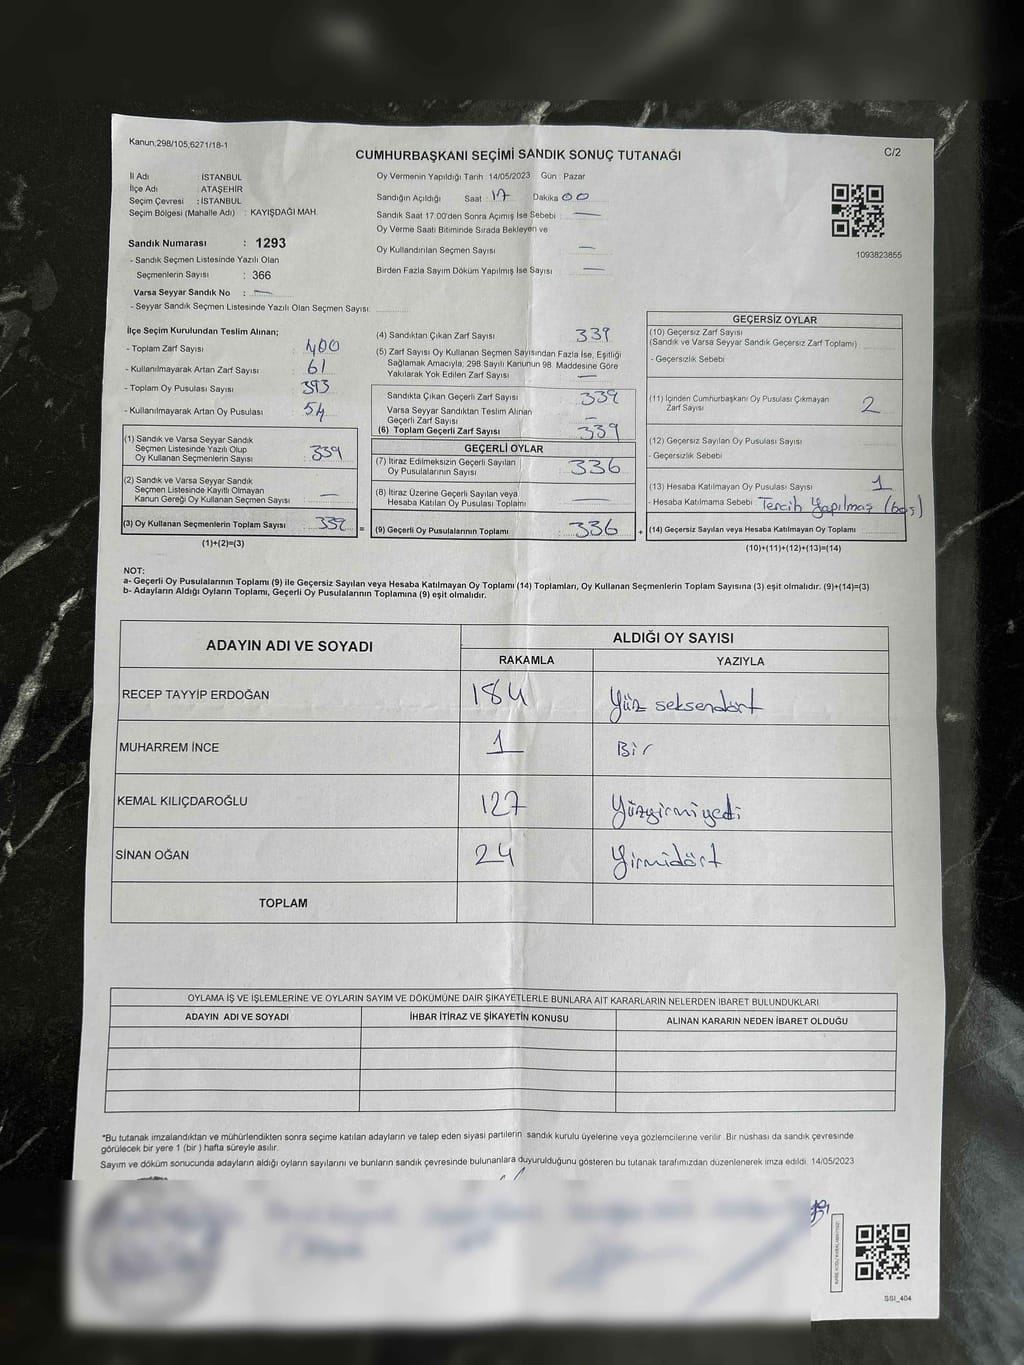 Kanun;298/105,6271/18-1
CUMHURBAŞKANI SEÇİMİ SANDIK SONUÇ TUTANAĞI
C/2
İl Adı : İSTANBUL
İlçe Adı : ATAŞEHİR
Seçim Çevresi : İSTANBUL
Seçim Bölgesi (Mahalle Adı) : KAYIŞDAĞI MAH.
Sandık Numarası : 1293
- Sandık Seçmen Listesinde Yazılı Olan
Seçmenlerin Sayısı : 366
Varsa Seyyar Sandık No : —
- Seyyar Sandık Seçmen Listesinde Yazılı Olan Seçmen Sayısı:
Oy Vermenin Yapıldığı Tarih :14/05/2023 Gün : Pazar
Sandığın Açıldığı Saat : 17 Dakika 00
Sandık Saat 17.00'den Sonra Açımış İse Sebebi : —
Oy Verme Saati Bitiminde Sırada Bekleyen ve
Oy Kullandırılan Seçmen Sayısı —
Birden Fazla Sayım Döküm Yapılmış İse Sayısı —
1093823855
İlçe Seçim Kurulundan Teslim Alınan;
- Toplam Zarf Sayısı : 400
- Kullanılmayarak Artan Zarf Sayısı : 61
- Toplam Oy Pusulası Sayısı : 393
- Kullanılmayarak Artan Oy Pusulası : 54
(1) Sandık ve Varsa Seyyar Sandık
Seçmen Listesinde Yazılı Olup
Oy Kullanan Seçmenlerin Sayısı : 339
(2) Sandık ve Varsa Seyyar Sandık
Seçmen Listesinde Kayıtlı Olmayan
Kanun Gereği Oy Kullanan Seçmen Sayısı : —
(3) Oy Kullanan Seçmenlerin Toplam Sayısı : 339 =
(1)+(2)=(3)
(4) Sandıktan Çıkan Zarf Sayısı : 339
(5) Zarf Sayısı Oy Kullanan Seçmen Sayısından Fazla İse, Eşitliği
Sağlamak Amacıyla, 298 Sayılı Kanunun 98. Maddesine Göre
Yakılarak Yok Edilen Zarf Sayısı : —
Sandıkta Çıkan Geçerli Zarf Sayısı : 339
Varsa Seyyar Sandıktan Teslim Alınan
Geçerli Zarf Sayısı : —
(6) Toplam Geçerli Zarf Sayısı : 339
GEÇERLİ OYLAR
(7) İtiraz Edilmeksizin Geçerli Sayılan
Oy Pusulalarının Sayısı : 336
(8) İtiraz Üzerine Geçerli Sayılan veya
Hesaba Katılan Oy Pusulası Toplamı : —
(9) Geçerli Oy Pusulalarının Toplamı : 336 +
GEÇERSİZ OYLAR
(10) Geçersiz Zarf Sayısı
(Sandık ve Varsa Seyyar Sandık Geçersiz Zarf Toplamı) :
- Geçersizlik Sebebi
(11) İçinden Cumhurbaşkanı Oy Pusulası Çıkmayan
Zarf Sayısı : 2
(12) Geçersiz Sayılan Oy Pusulası Sayısı :
- Geçersizlik Sebebi
(13) Hesaba Katılmayan Oy Pusulası Sayısı : 1
- Hesaba Katılmama Sebebi : Tercih Yapılmaş (boş)
(14) Geçersiz Sayılan veya Hesaba Katılmayan Oy Toplamı
(10)+(11)+(12)+(13)=(14)
NOT:
a- Geçerli Oy Pusulalarının Toplamı (9) ile Geçersiz Sayılan veya Hesaba Katılmayan Oy Toplamı (14) Toplamları, Oy Kullanan Seçmenlerin Toplam Sayısına (3) eşit olmalıdır. (9)+(14)=(3)
b- Adayların Aldığı Oyların Toplamı, Geçerli Oy Pusulalarının Toplamına (9) eşit olmalıdır.
ADAYIN ADI VE SOYADI
ALDIĞI OY SAYISI
RAKAMLA YAZIYLA
RECEP TAYYİP ERDOĞAN 184 Yüz seksendört
MUHARREM İNCE 1 Bir
KEMAL KILIÇDAROĞLU 127 Yüzyirmiyedi
SİNAN OĞAN 24 Yirmidört
TOPLAM
OYLAMA İŞ VE İŞLEMLERİNE VE OYLARIN SAYIM VE DÖKÜMÜNE DAİR ŞİKAYETLERLE BUNLARA AİT KARARLARIN NELERDEN İBARET BULUNDUKLARI
ADAYIN ADI VE SOYADI İHBAR İTİRAZ VE ŞİKAYETİN KONUSU ALINAN KARARIN NEDEN İBARET OLDUĞU
*Bu tutanak imzalandıktan ve mühürlendikten sonra seçime katılan adayların ve talep eden siyasi partilerin sandık kurulu üyelerine veya gözlemcilerine verilir. Bir nüshası da sandık çevresinde
görülecek bir yere 1 (bir ) hafta süreyle asılır.
Sayım ve döküm sonucunda adayların aldığı oyların sayılarını ve bunların sandık çevresinde bulunanlara duyurulduğunu gösteren bu tutanak tarafımızdan düzenlenerek imza edildi. 14/05/2023
SSI_404